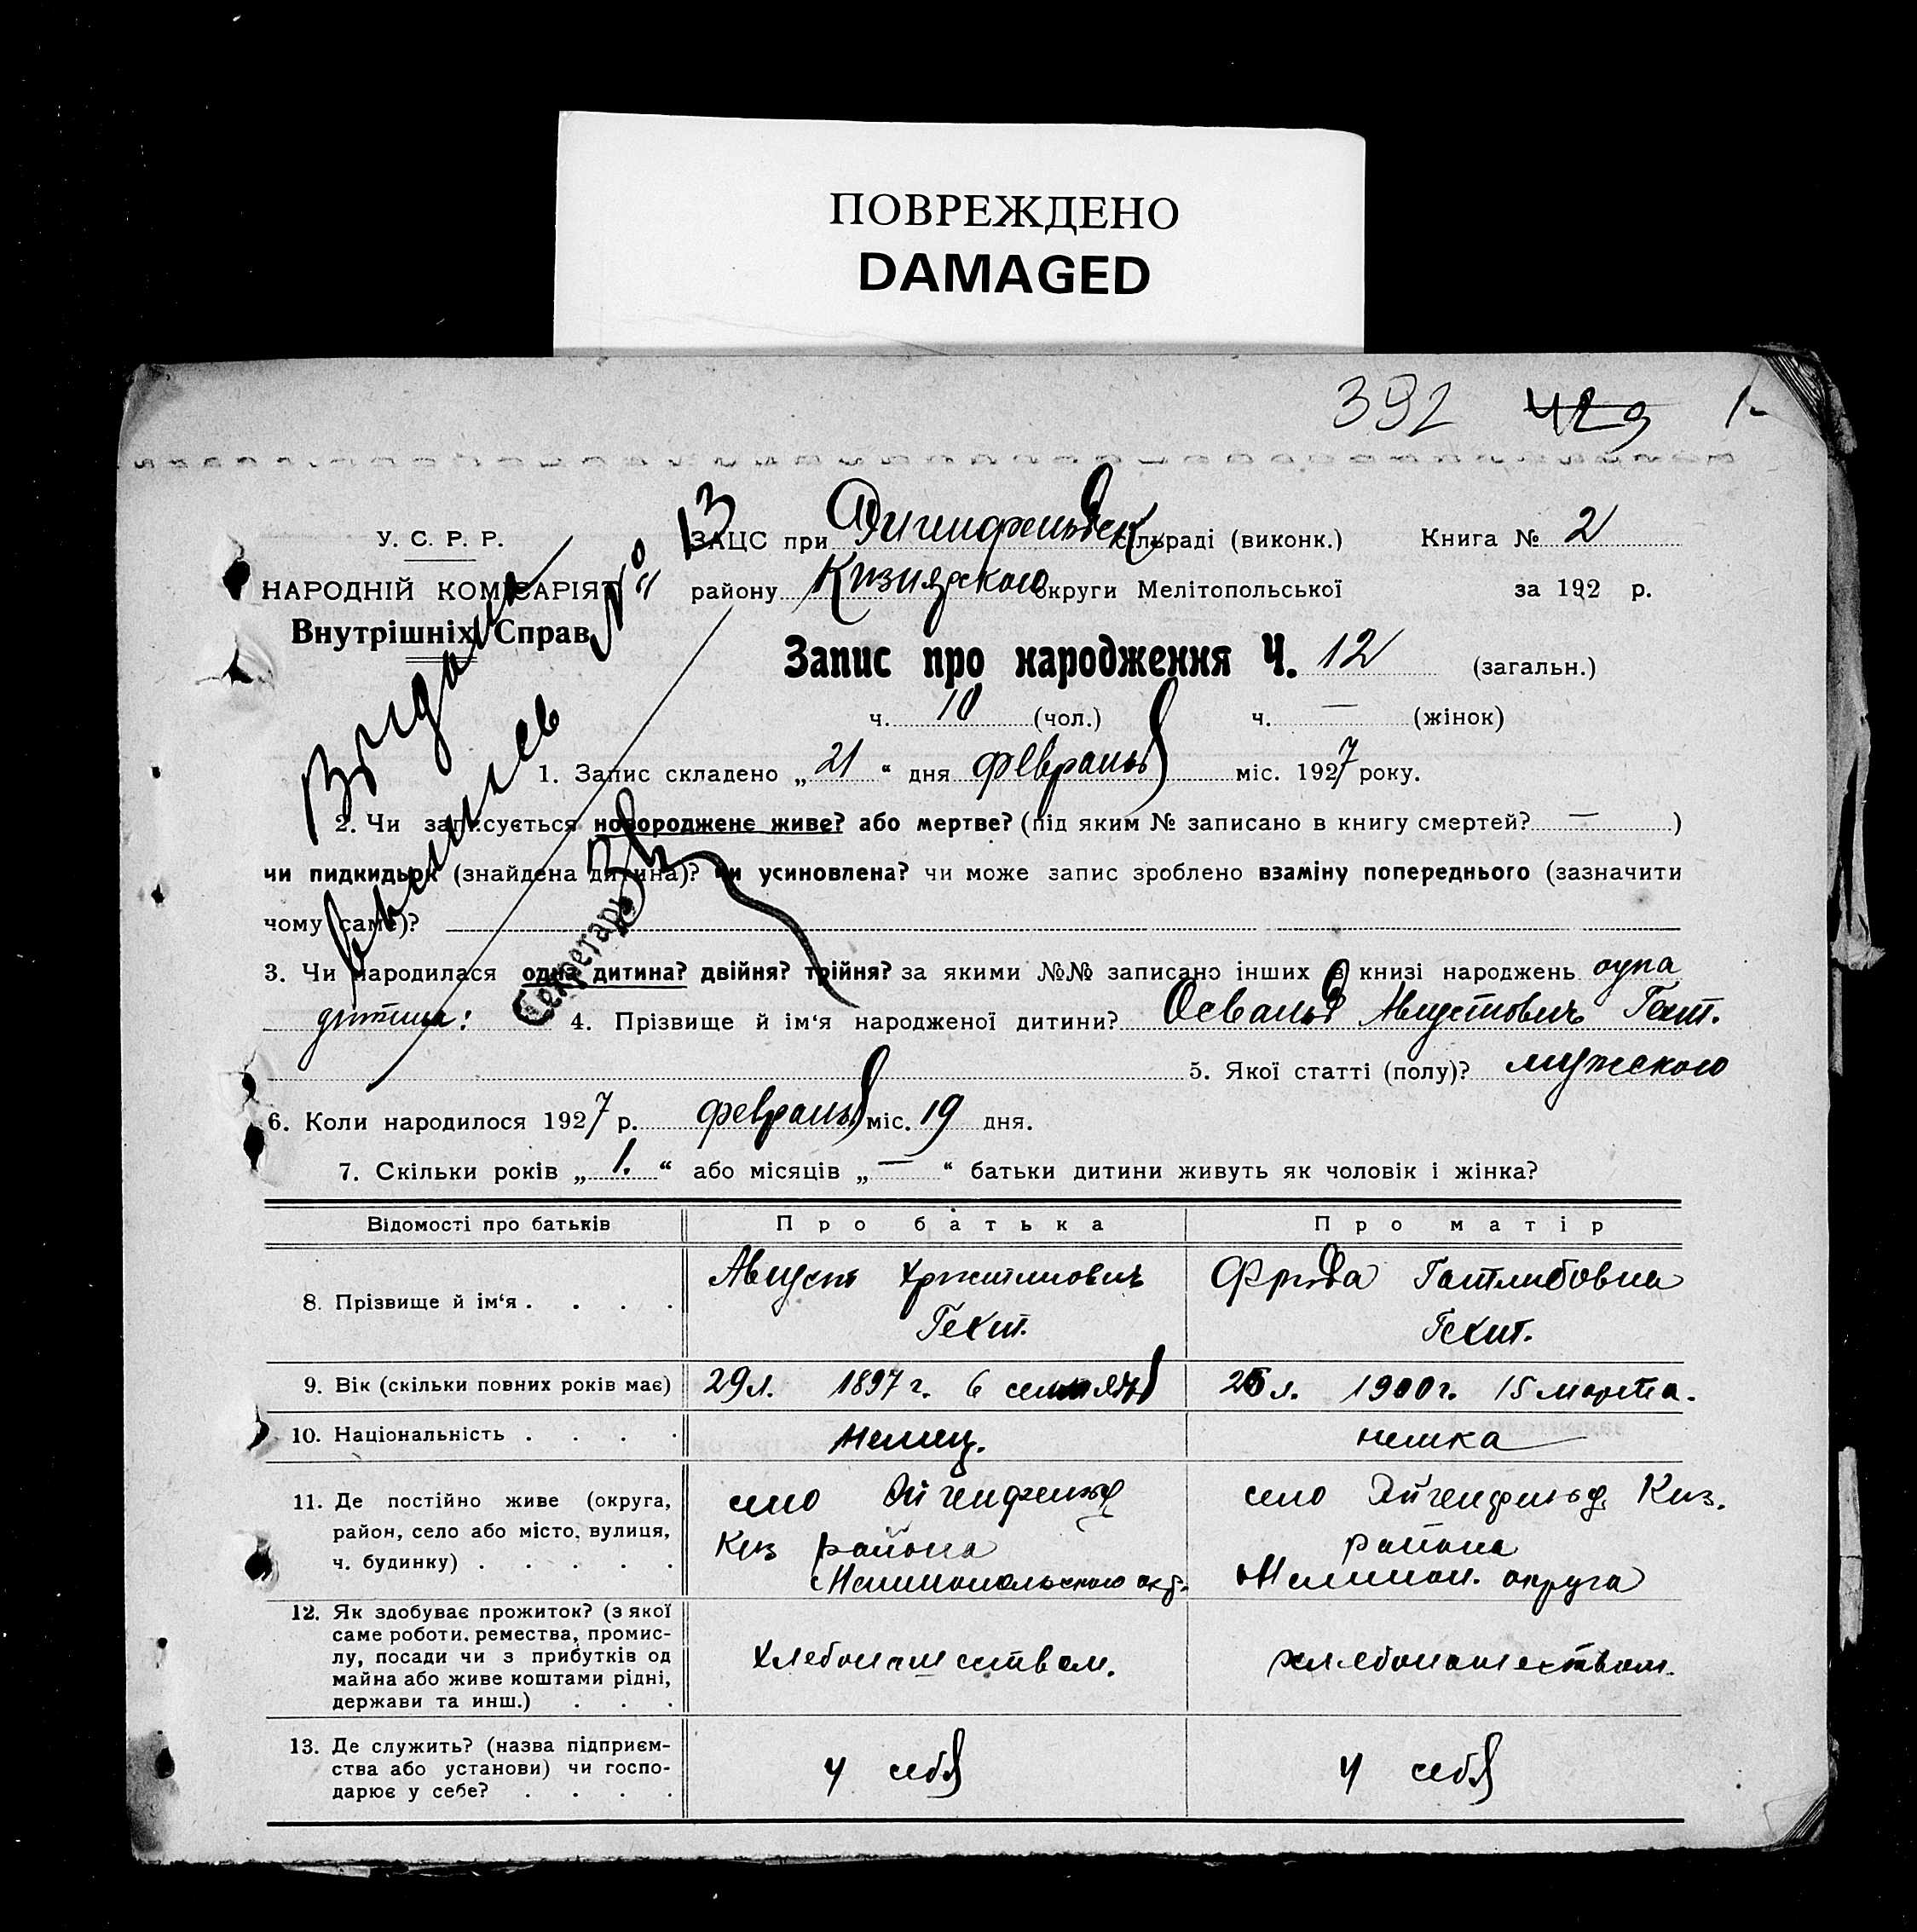 ПОВРЕЖДЕНО
DAMAGED
392 429 1
У. С. Р. Р.
НАРОДНІЙ КОМІСАРІЯТ
Внутрішніх Справ
Выдана №13
Секретарь
ЗАЦС при Эйгенфельдск сільраді (виконк.) Книга № 2
району Кизиярского округи Мелітопольської за 192 р.
Запис про народження Ч. 12 (загальн.)
ч. 10 (чол.) ч. — (жінок)
1. Запис складено „21“ дня февраль міс. 1927 року.
2. Чи записується новороджене живе? або мертве? (під яким № записано в книгу смертей? — )
чи пидкидьок (знайдена дитина)? чи усиновлена? чи може запис зроблено взаміну попереднього (зазначити
чому саме)?
3. Чи народилася одна дитина? двійня? трійня? за якими №№ записано інших в книзі народжень
4. Прізвище й ім'я народженої дитини? Освальд Августович Гехт.
5. Якої статті (полу)? мужского
6. Коли народилося 1927 р. февраль міс. 19 дня.
7. Скільки років „1.“ або місяців „—“ батьки дитини живуть як чоловік і жінка?
Відомості про батьків Про батька Про матір
8. Прізвище й ім'я . . . . Август Христианович Фрида Готлибовна
Гехт. Гехт.
9. Вік (скільки повних років має) 29л. 1897 г. 6 сентяб 26 л. 1900 г. 15 марта.
10. Національність . . . . Немец. немка
11. Де постійно живе (округа, село Эйгенфельд село Эйгенфельд Киз.
район, село або місто, вулиця, Киз района района
ч. будинку) . . . . . Мелитопольского окр. Мелитоп. округа
12. Як здобуває прожиток? (з якої
саме роботи, ремества, промис-
лу, посади чи з прибутків од хлебопашеством. хлебопашеством.
майна або живе коштами рідні,
держави та инш.) . . .
13. Де служить? (назва підприєм-
ства або установи) чи госпо- у себя у себя
дарює у себе? . . . .